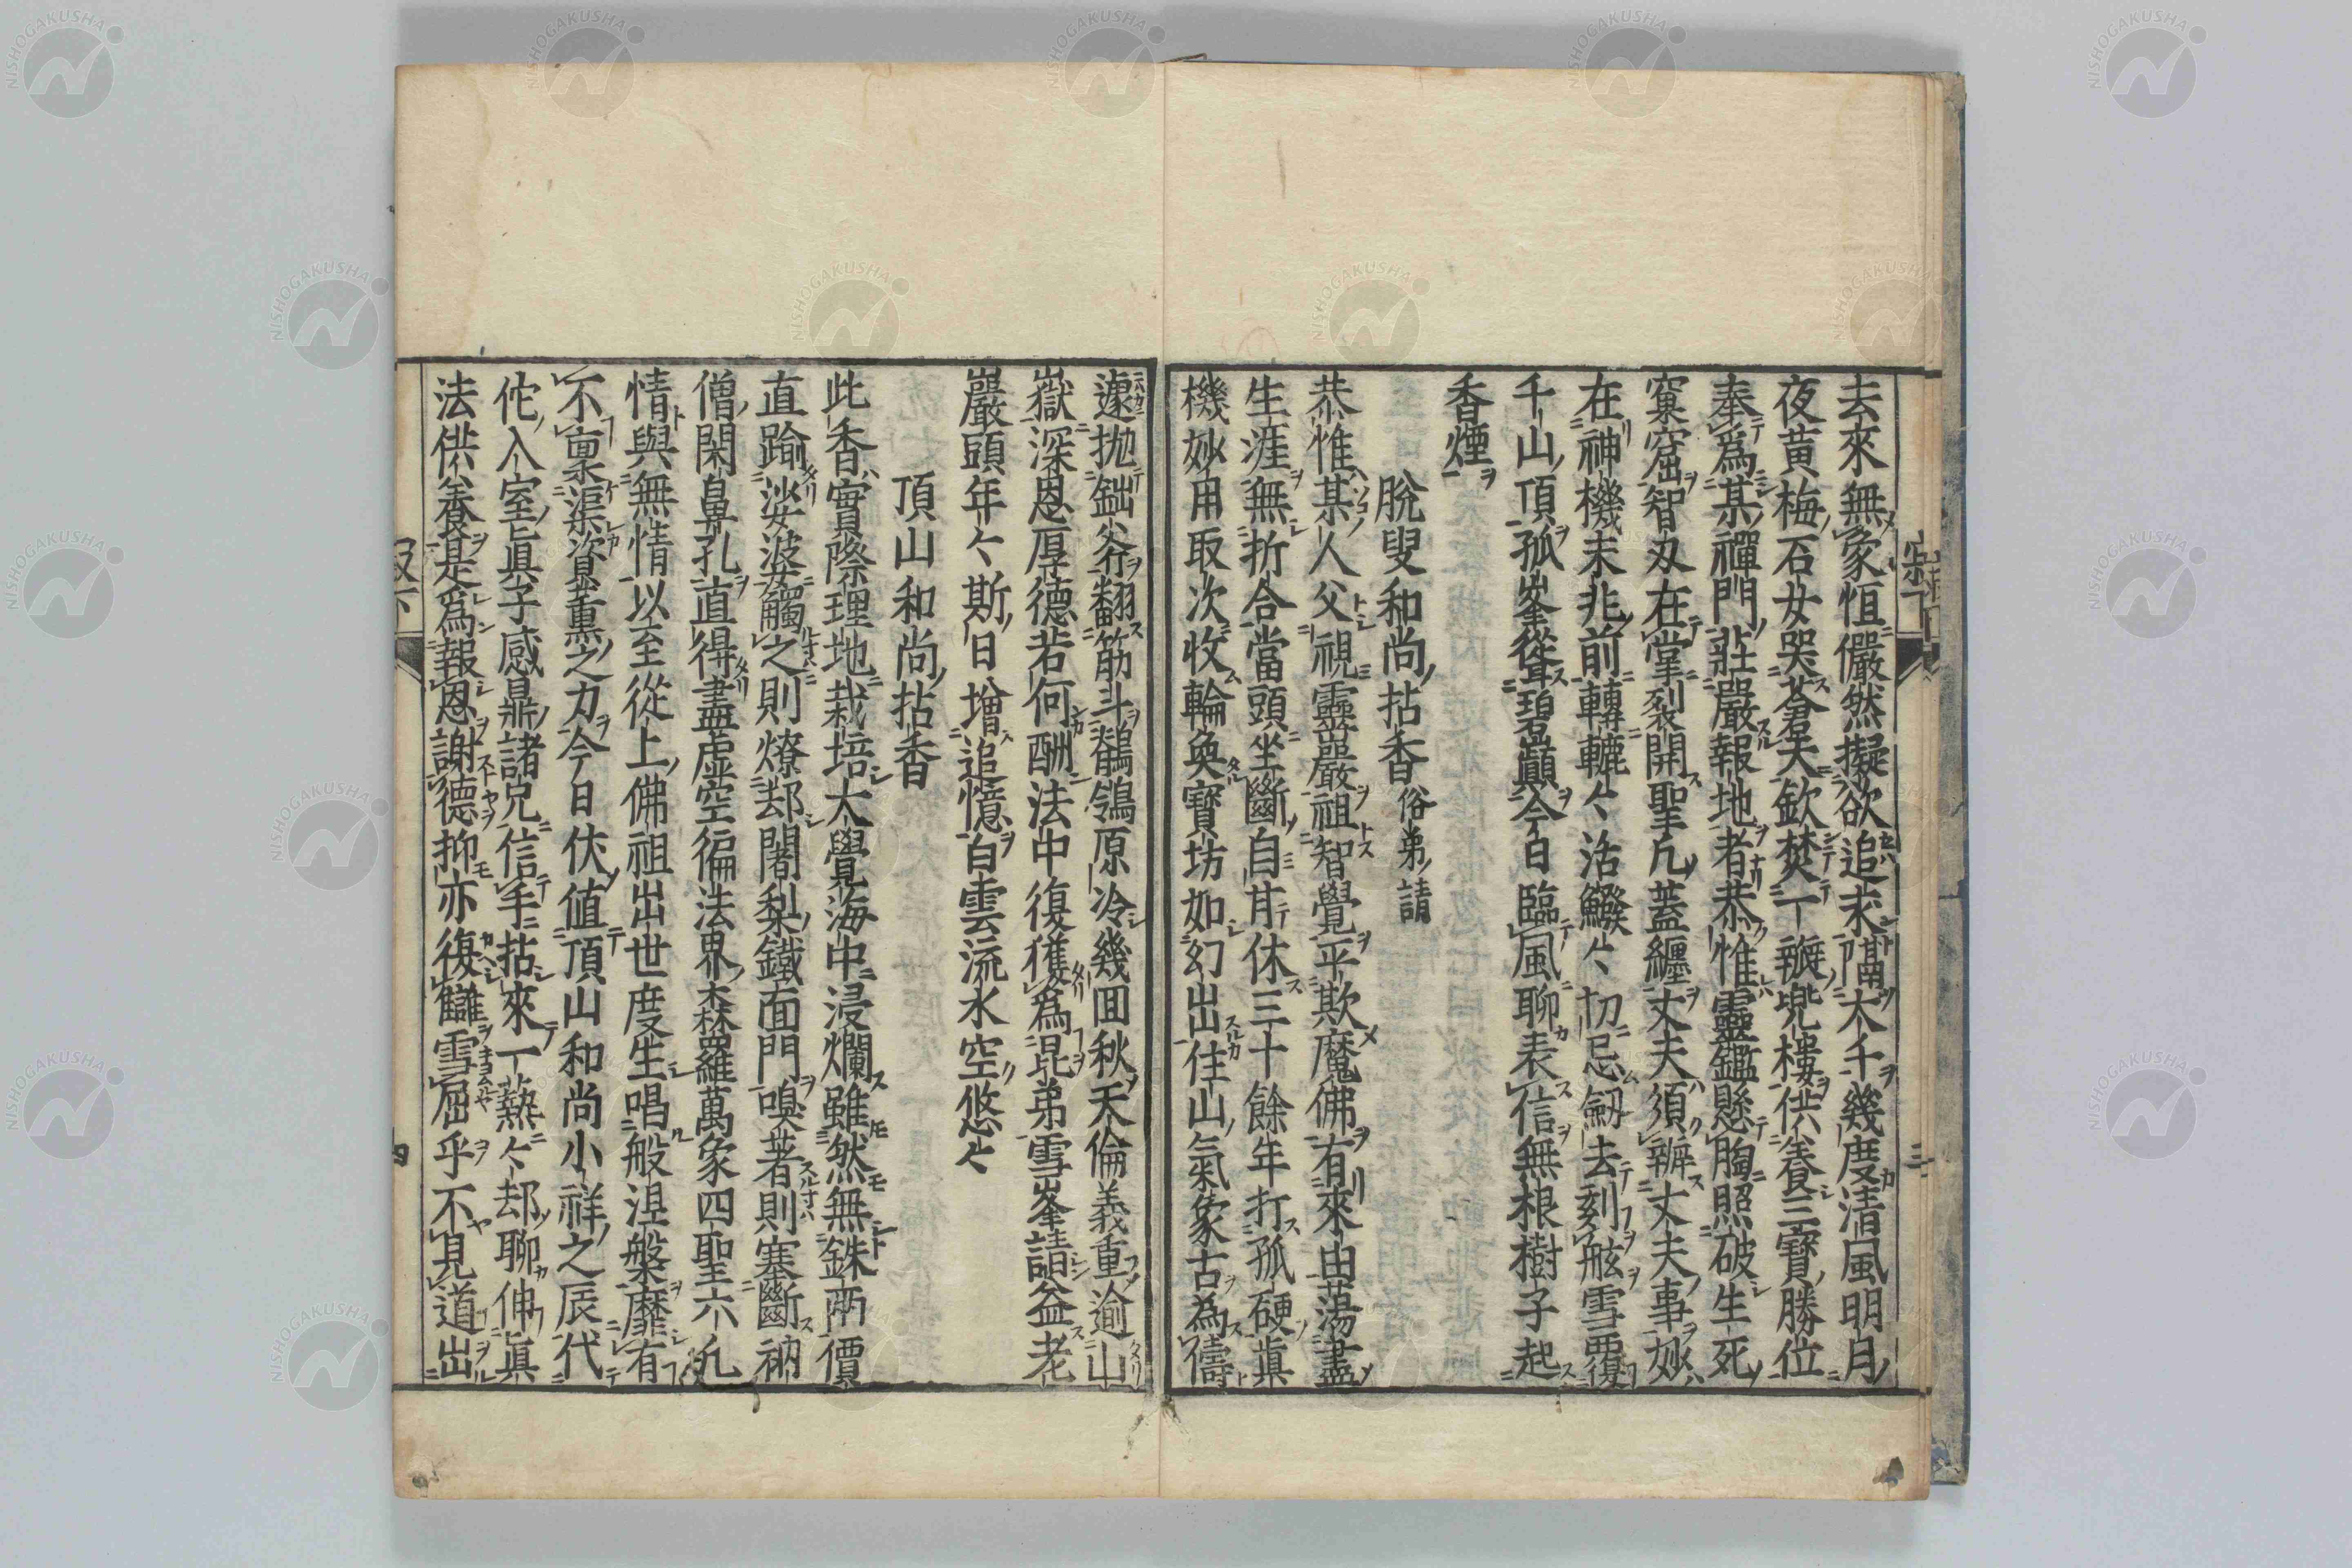 去來無象恒儼然擬欲追求隔大千幾度淸風明月
夜黄梅石女哭蒼天欽焚一瓣兜樓供養三寶勝位
奉爲某禪門莊嚴報地者恭惟靈鑑懸胸照破生死
窠窟智刄在掌裂開聖凡蓋纏丈夫須辦丈夫事妙
在神機未兆前轉轆〻活鱍〻切忌劒去刻舷雪覆
千山頂孤峯聳碧巓今日臨風聊表信無根樹子起
香煙
脫叟和尚拈香 俗弟請
恭惟某人父視靈巖祖智覺平欺魔佛有來由蕩盡
生涯無折合當頭坐斷自甘休三十餘年打孤硬眞
機妙用取次收輪奐寶坊如幻出住山氣象古為儔
遽抛鈯斧翻筋斗鶺鴒原冷幾囬秋天倫義重逾山
嶽深恩厚德若何酬法中復獲爲昆弟雪峯請益老
巖頭年〻斯日增追憶白雲流水空悠〻
頂山和尚拈香
此香實際理地栽培大覺海中浸爛雖然無銖兩價
直踰娑婆觸之則燎却闍梨鐵面門嗅著則塞斷衲
僧閑鼻孔直得盡虚空徧法界森羅萬象四聖六凡
情與無情以至從上佛祖出世度生唱般涅槃靡有
不稟渠資薰之力今日伏値頂山和尚小祥之辰代
佗入室眞子感鼎諸兄信手拈來一爇〻却聊伸眞
法供養是爲報恩謝德抑亦復讎雪屈乎不見道出